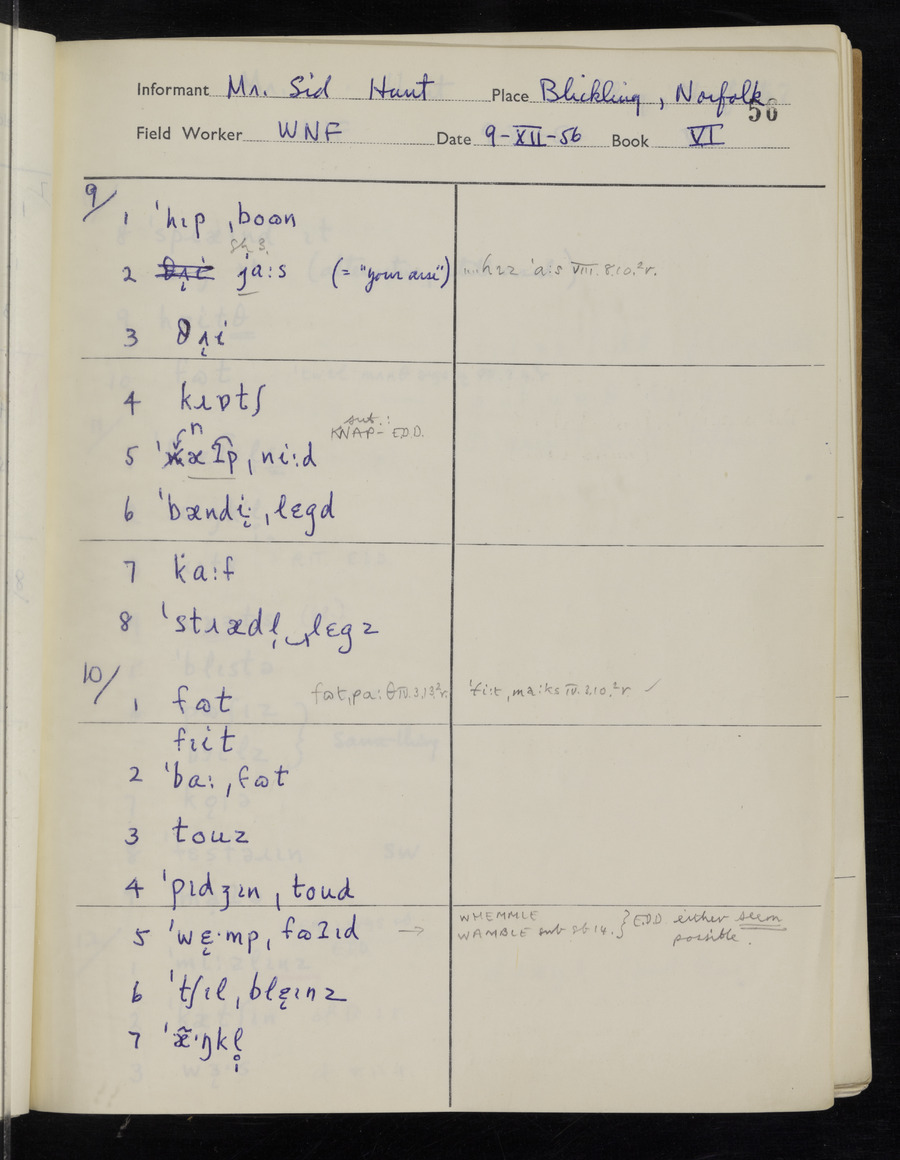 Informant Mr. Sid Hunt Place Blickling, Norfolk
56
Field Worker WNF Date 9-XII-56 Book VI
9/
1 ˈhɪp ˌbɷən
sh 3.
2 jaːs (= "your arse") ...hɪz ˈaːs VIII.8.10.²r.
3 θɹ̞i
4 kɹɒtʃ
sub.:
KNAP- E.D.D.
n
5 niːd
6 ˈbændi̞ː ˌlɛgd
7 kaːf
8 ˈstɹædl̩ ˌlɛgz
10/
1 fɷt fɷt,paːθ IV.3.13.²r. ˈfiːt ˌmaːks IV.2.10.²r ✓
fɪit
2 ˈbaː ˌfɷt
3 touz
4 ˈpɪdʒɪn ˌtoud
WHEMMLE
5 ˈwɛ̞·mp ˌfɷʔɪd → WAMBLE sub sb 14. } E.D.D. either seem
possible.
6 ˈtʃɪl ˌblɛ̞ɪnz
7 ˈæ̃·ŋkl̥